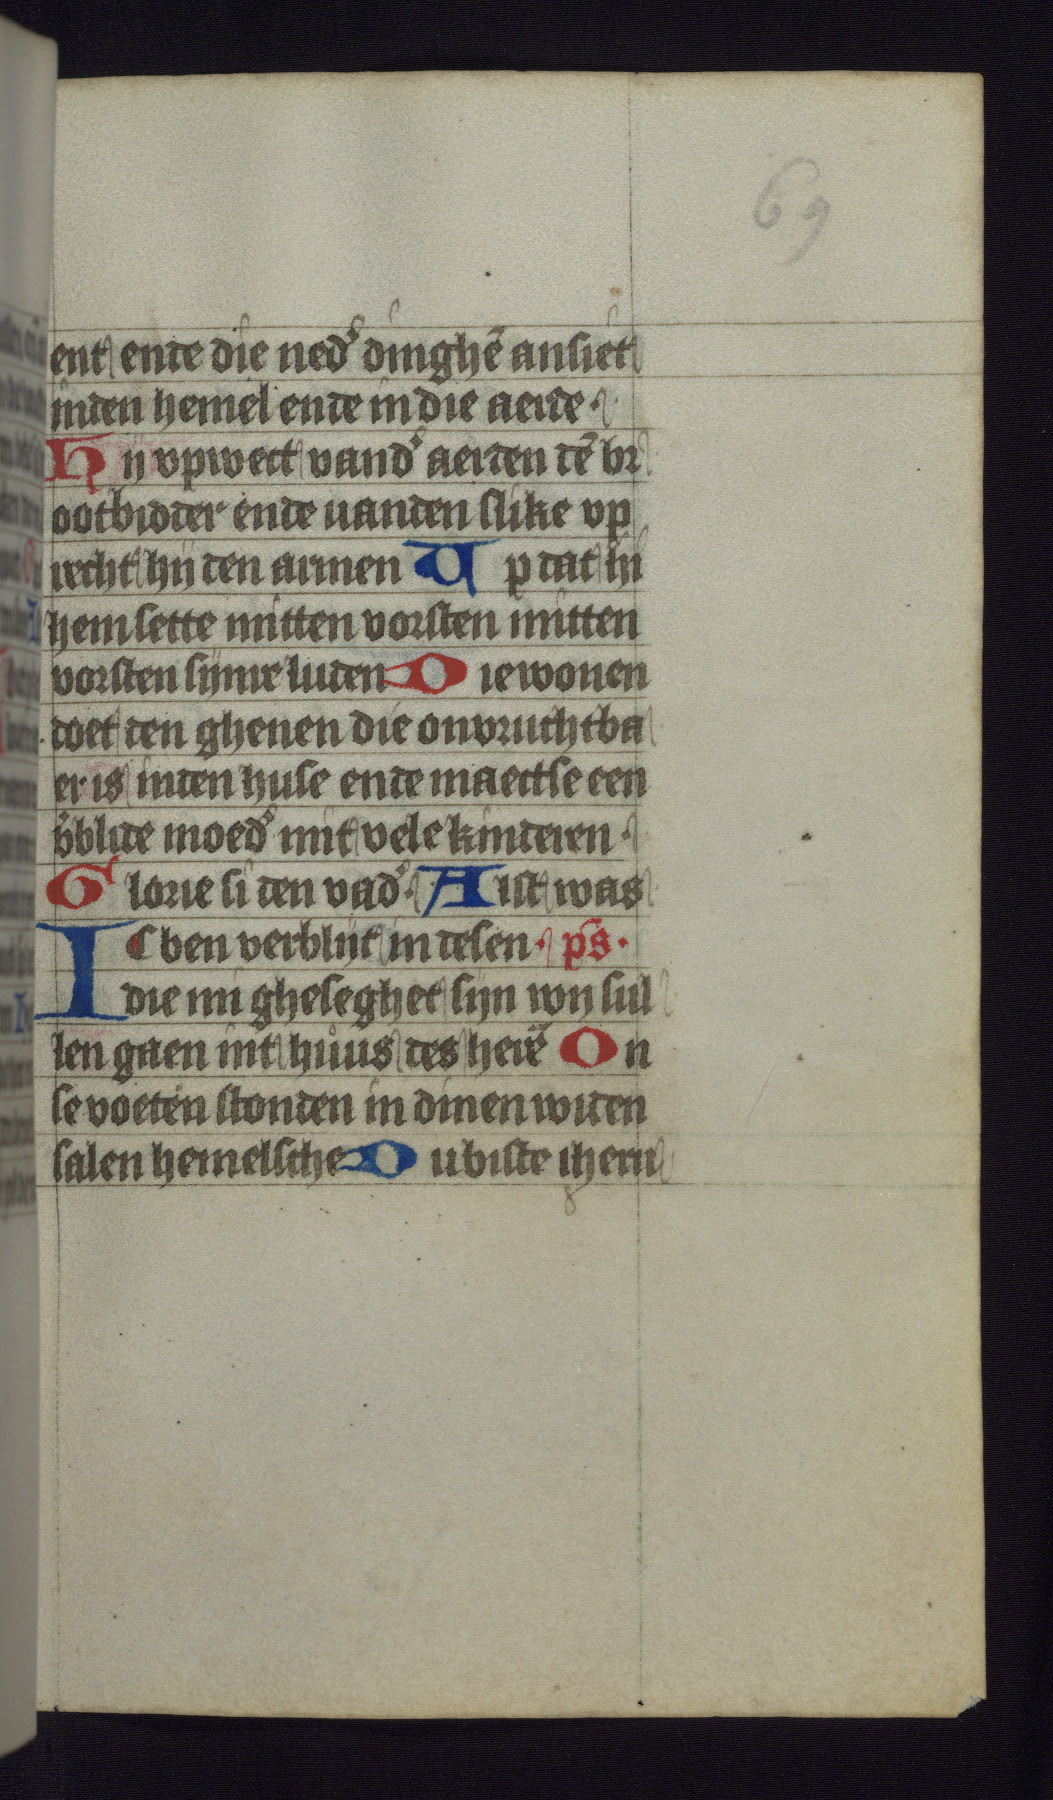 69
ent ende die ned' dinghē ansiet
inden hemel ende in die aerde.
Hij vpwect vand' aerden dē br
ootbidder ende uanden slike vp
recht hij den armen Up dat hi
hem sette mitten vorsten mitten
vorsten sijnre luden Die wonen
doet den ghenen die onvruchtba
er is inden huse ende maectse een
v'blide moed' mit vele kinderen.
Glorie si den vad'. Alst was
Ic ben verblijt in desen. ps.
die mi gheseghet sijn wij sul
len gaen int huus des herē On
se voeten stonden in dinen widen
salen hemelsche Du biste iheru